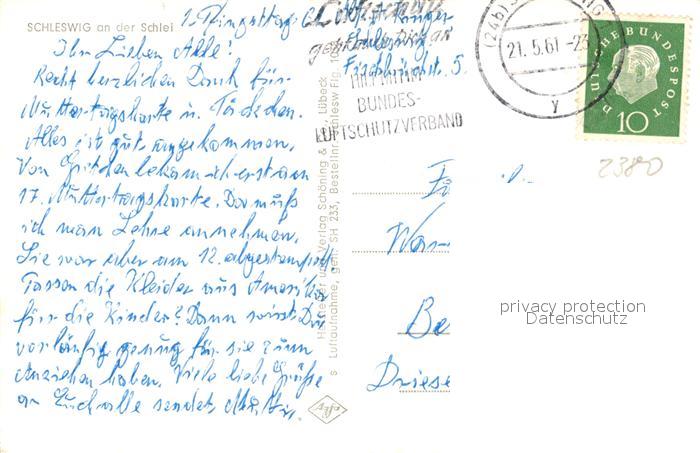 SCHLESWIG an der Schlei
1. Pfingsttag 61.
Ihr Lieben Alle!
Recht herzlichen Dank für
Muttertagskarte u. Päckchen.
Alles ist gut angekommen.
Von bekam ich erst am
17. Muttertagskarte. Da muß
ich man annehmen.
Sie war aber am 12. abgestempelt
Passen die Kleider aus Amerika
für die Kinder? Dann wirst Du
vorläufig genug für sie zum
Anziehen haben. Viele liebe Grüße
an Euch alle sendet Mutti.
Hersteller und Verlag Schöning & Co., Lübeck
s Luftaufnahme, gen. SH 233, Bestellnr. Schlesw Flg.
Schleswig
5.
BUNDES-
LUFTSCHUTZVERBAND
(24b) SCHLESWIG 1
21.5.61-23
y
DEUTSCHE BUNDESPOST
10
2380
Fa
War
Be
Driese
privacy protection
Datenschutz